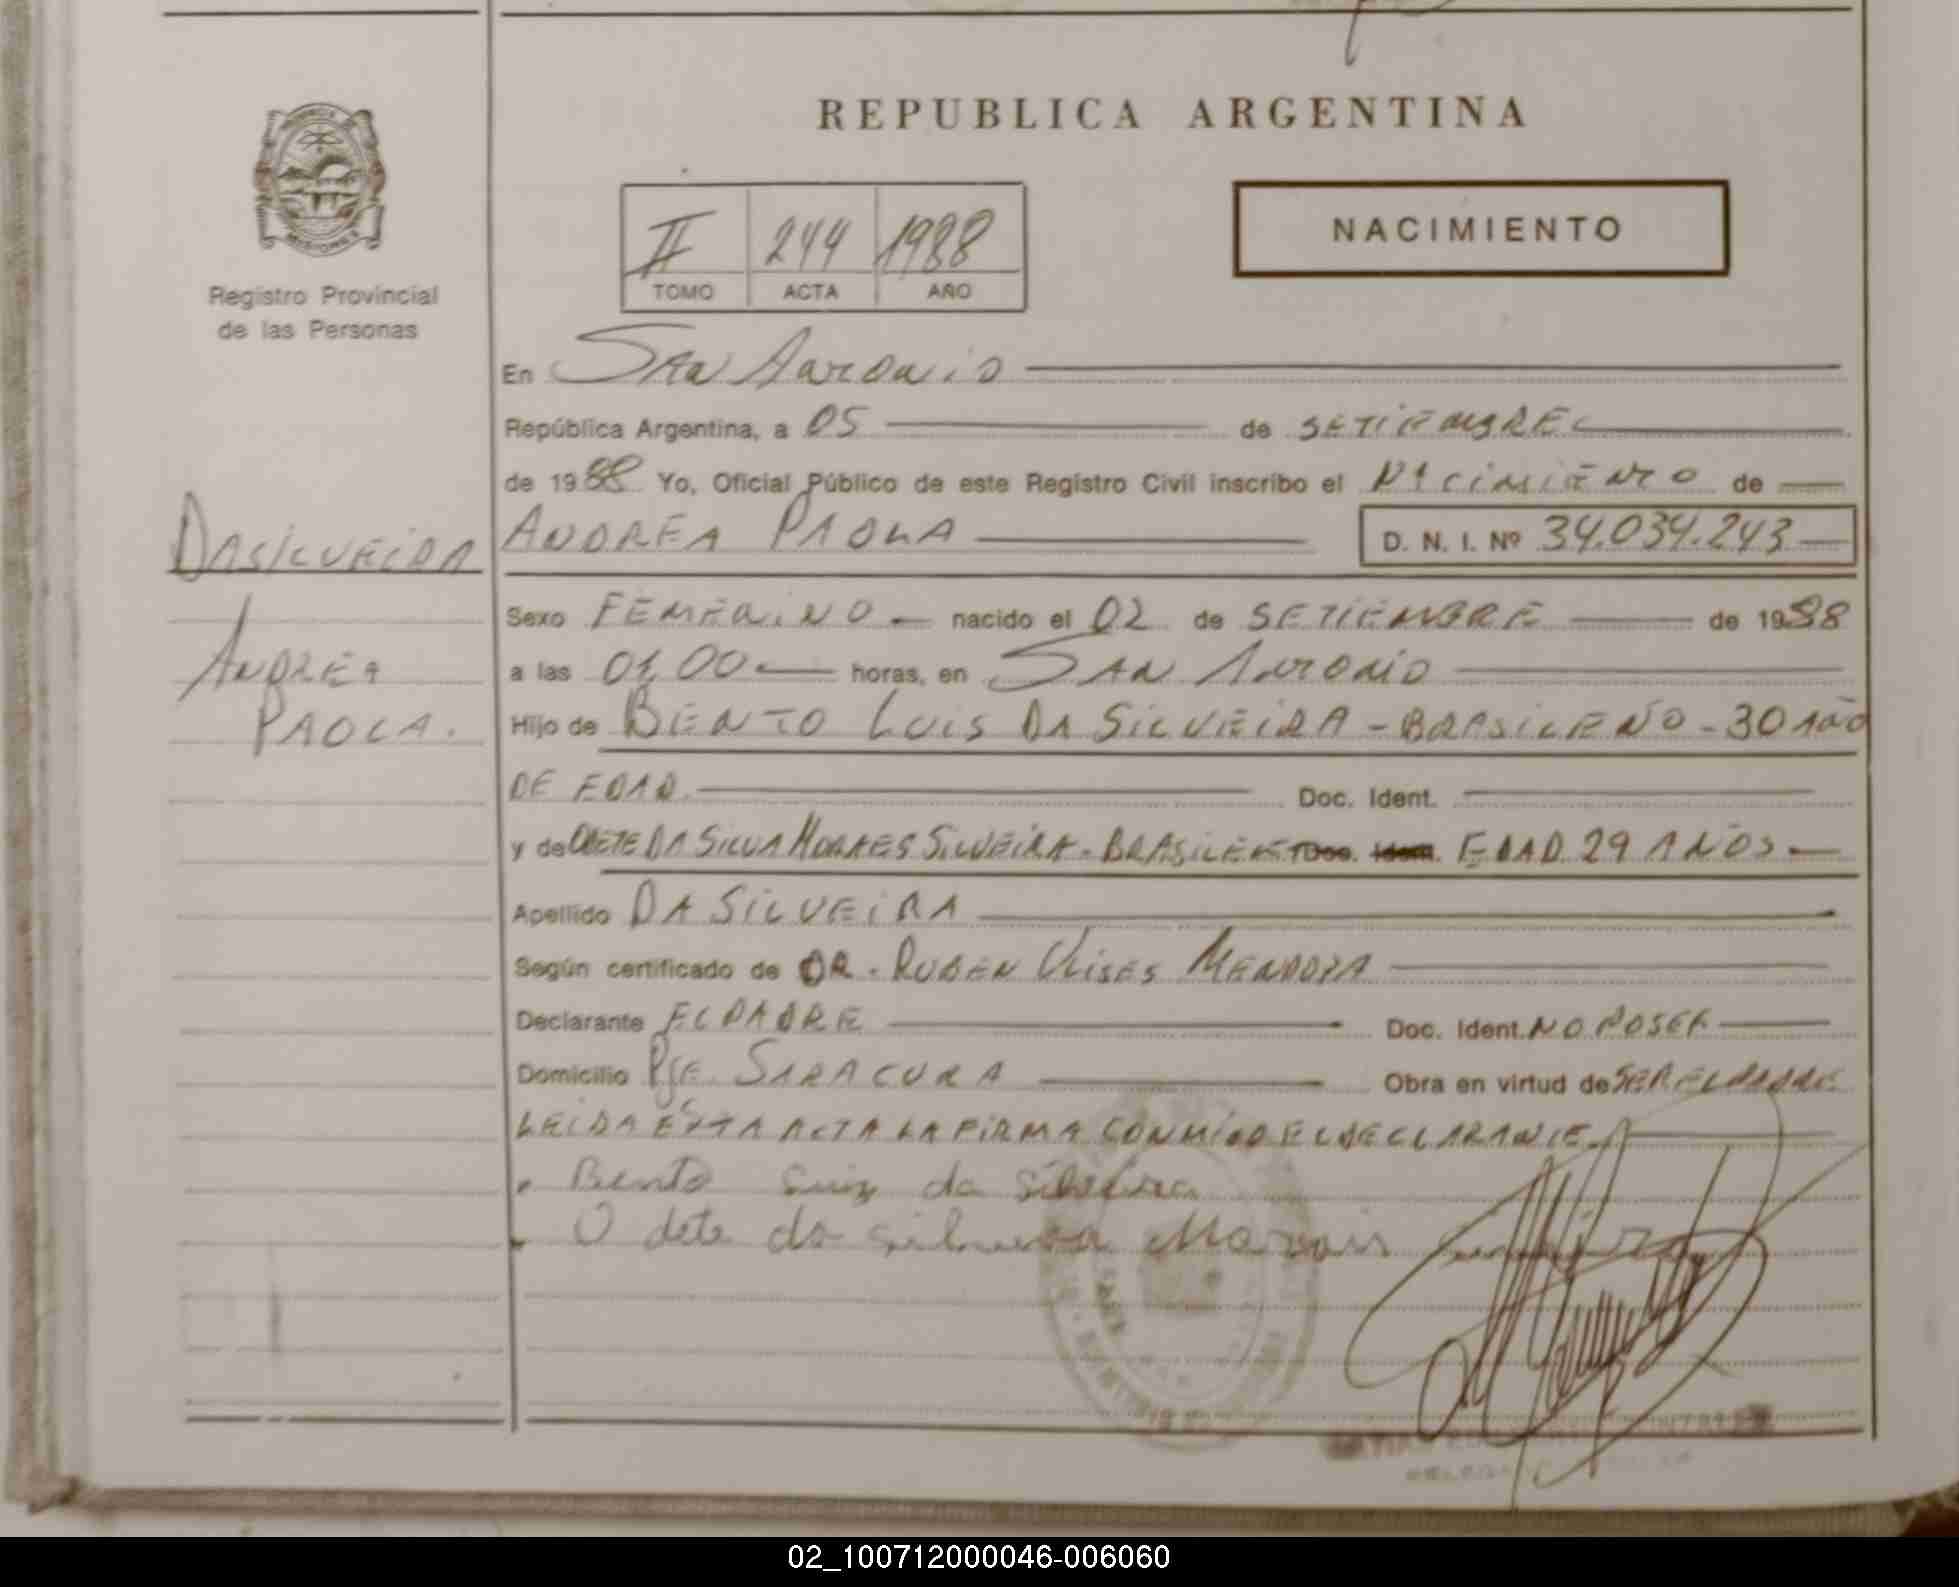 REPUBLICA ARGENTINA
NACIMIENTO
II 244 1988
TOMO ACTA AÑO
MISIONES
Registro Provincial
de las Personas
En San Antonio
República Argentina, a 05 de SETIEMBRE
de 1988 Yo, Oficial Público de este Registro Civil inscribo el NACIMIENTO de
DASILVEIRA
ANDREA PAOLA
D. N. I. Nº 34.034.243
Sexo FEMENINO nacido el 02 de SETIEMBRE de 1988
ANDREA
PAOLA.
a las 01,00 horas, en SAN ANTONIO
Hijo de BENTO LUIS DA SILVEIRA - BRASILEÑO - 30 AÑO
DE EDAD. Doc. Ident.
y de ODETE DA SILVA MORAES SILVEIRA. BRASILEÑA Doc. Ident. EDAD 29 AÑOS
Apellido DA SILVEIRA
Según certificado de DR. RUBEN ULISES MENDOZA
Declarante EL PADRE Doc. Ident. NO POSEE
Domicilio PJE. SARACURA Obra en virtud de SER EL PADRE
LEIDA ESTA ACTA LA FIRMA CONMIGO EL DECLARANTE.
Bento Luiz da Silveira
Odete da Silveira Morais
02_100712000046-006060